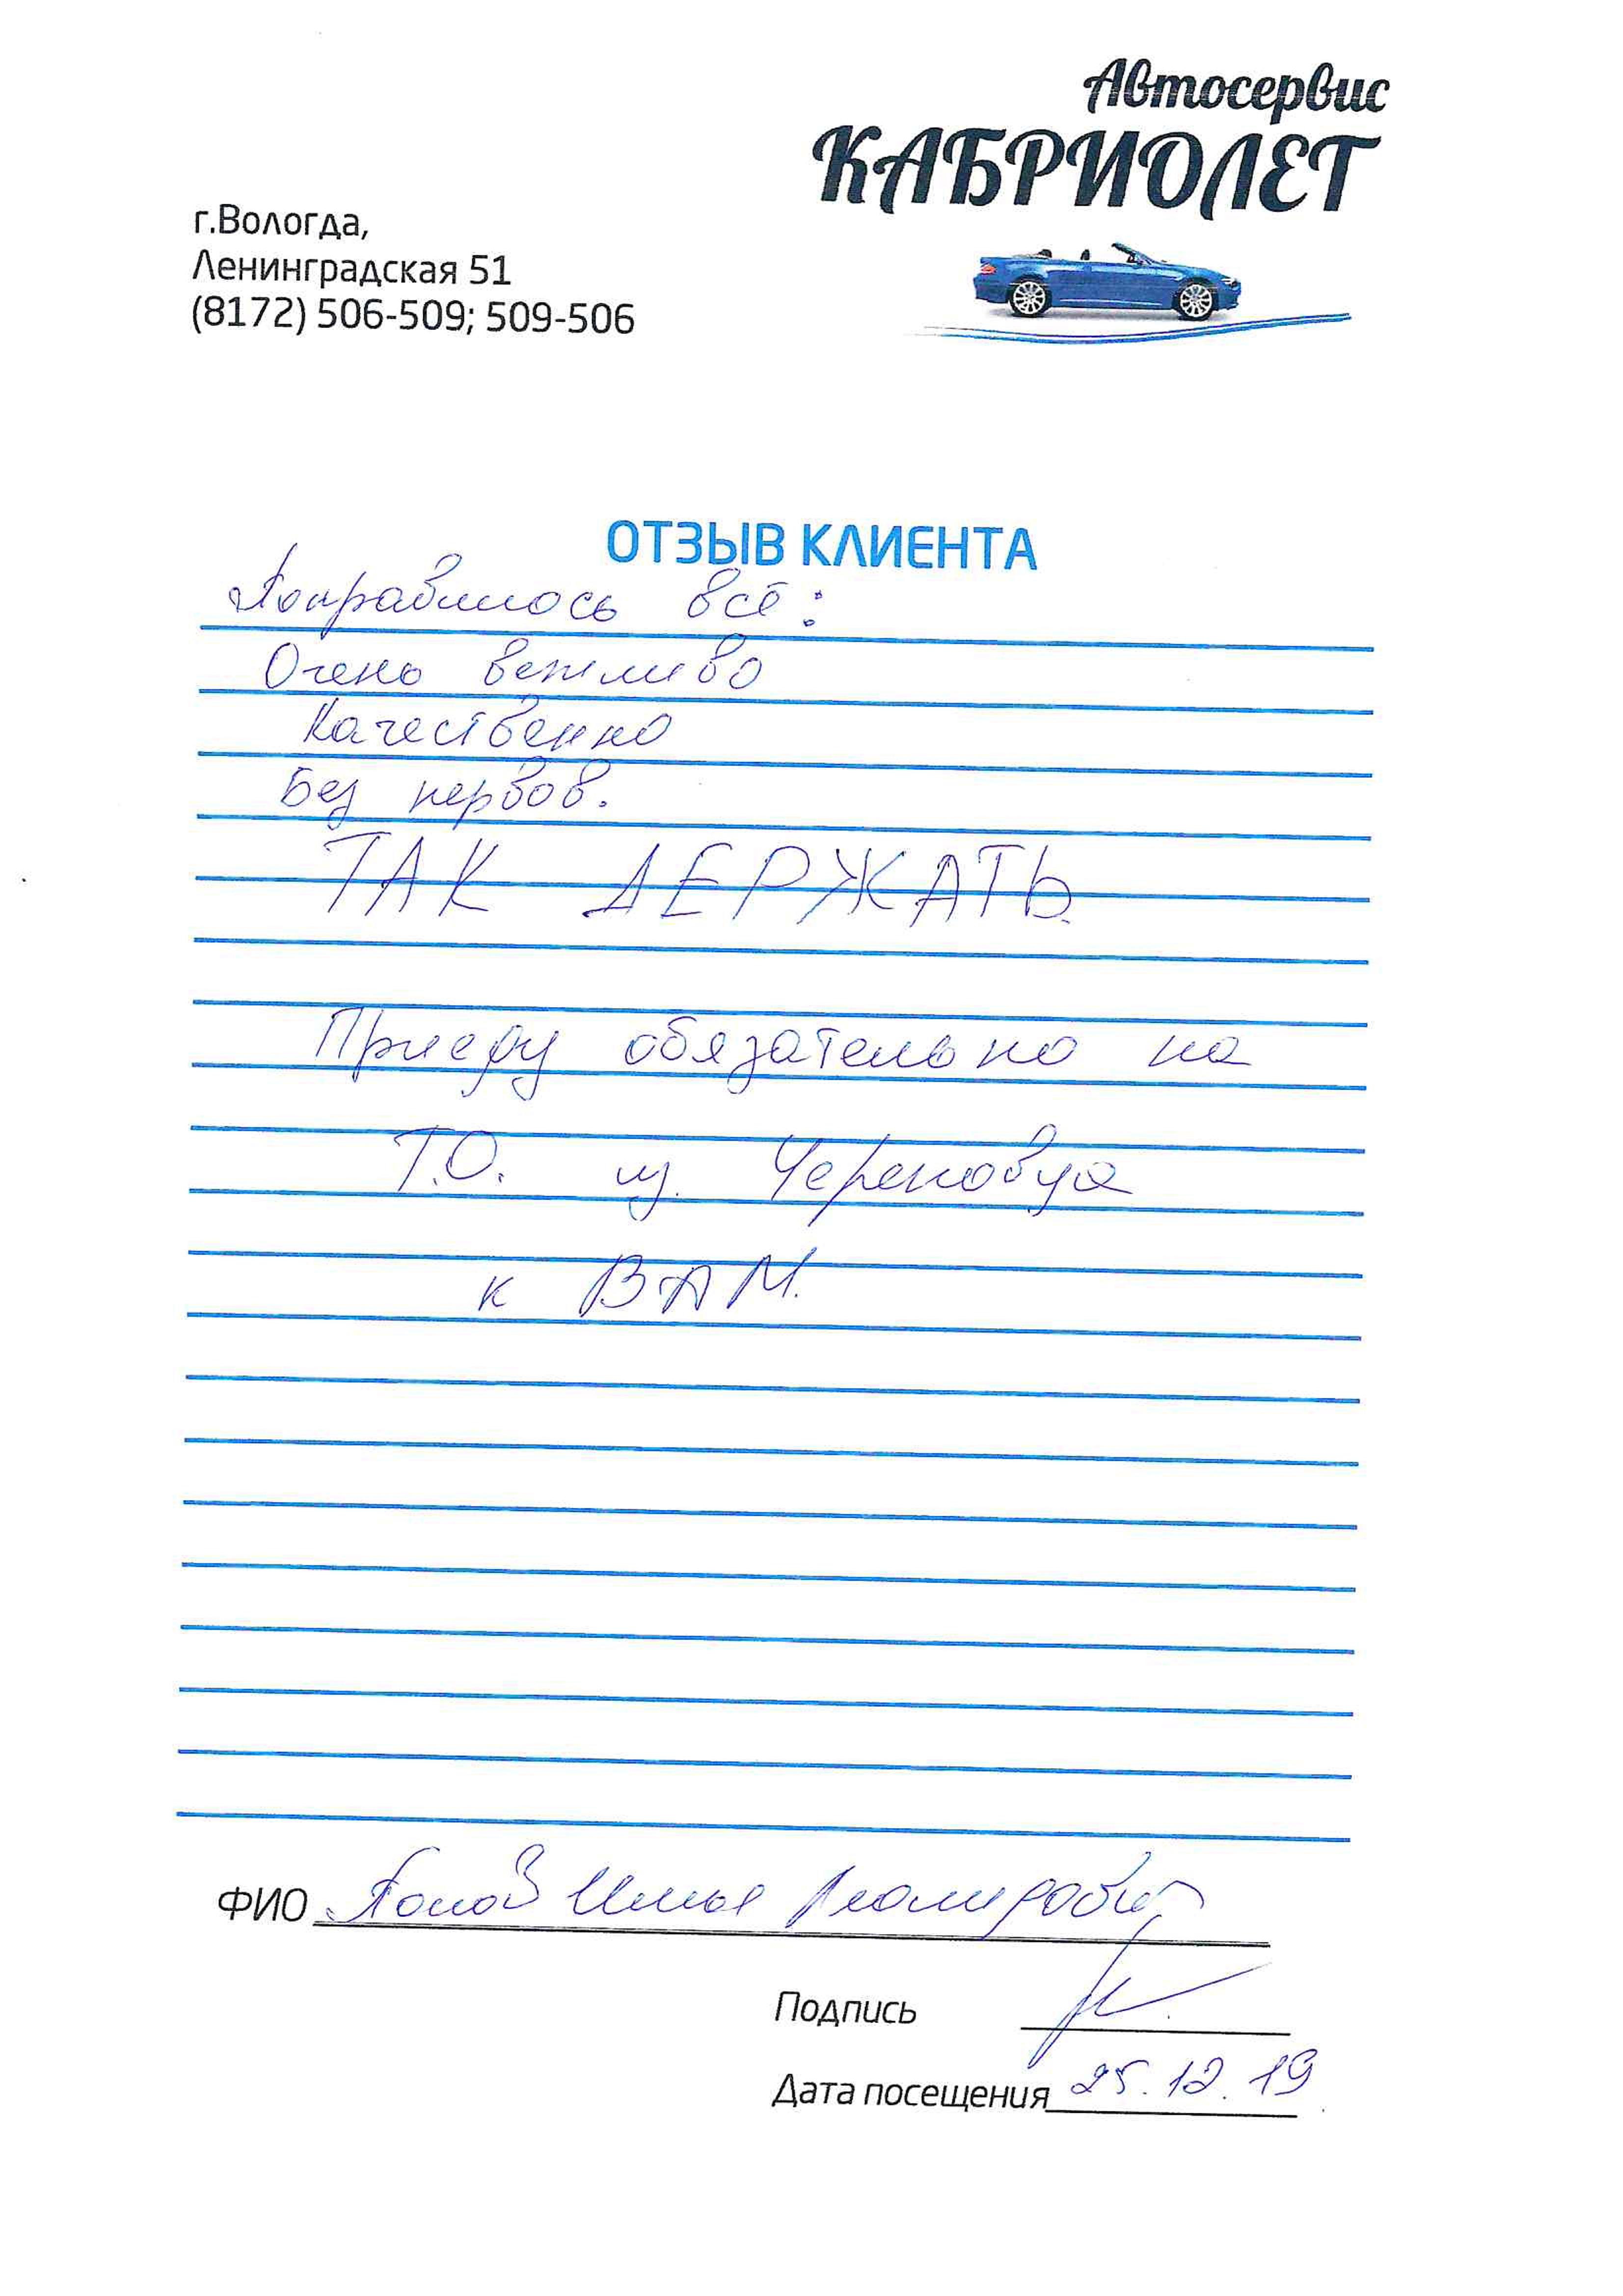 Автосервис
КАБРИОЛЕТ
г.Вологда,
Ленинградская 51
(8172) 506-509; 509-506
ОТЗЫВ КЛИЕНТА
Понравилось всё:
Очень вежливо
Качественно
Без нервов.
ТАК ДЕРЖАТЬ
Приеду обязательно на
Т.О. из. Череповца
к ВАМ.
ФИО Илья
Подпись
Дата посещения 25.12.19